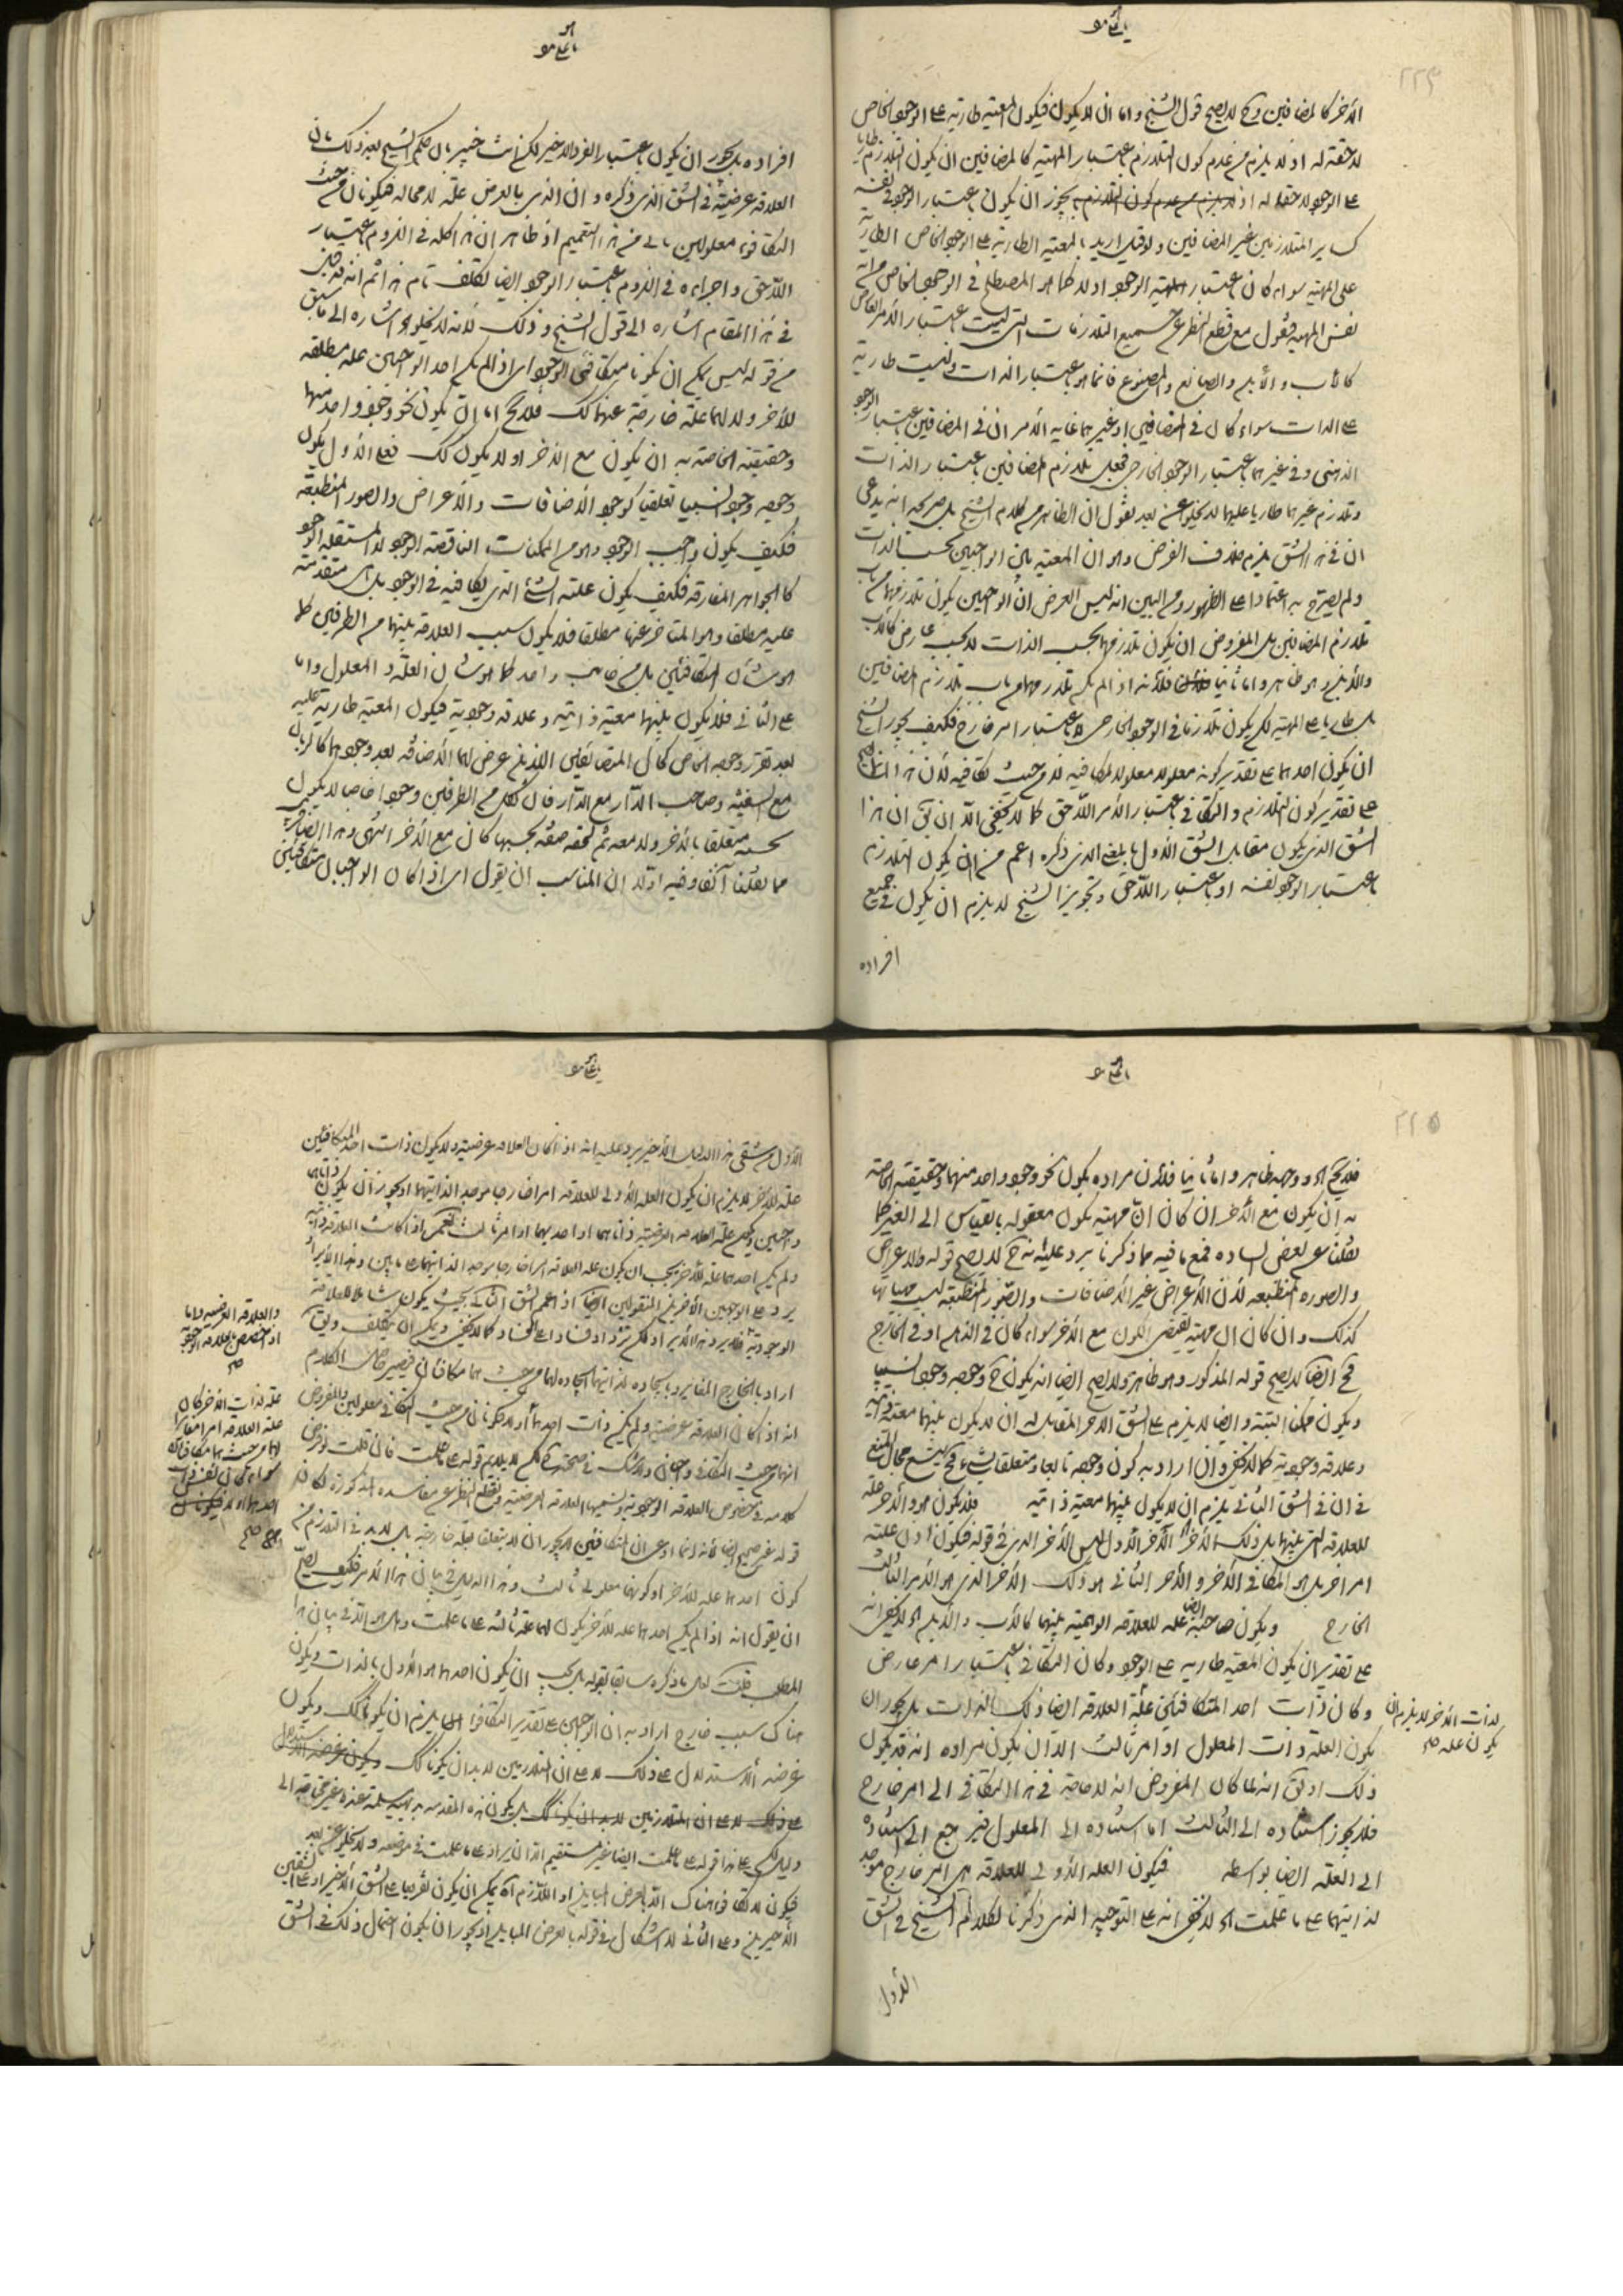 ٢٢٤
الآخر كالمضافين وح لا يصح قول الشيخ واما ان لا يكون فيكون المعية طارية على الوجود الخاص
لاحقة له اذ لا يلزم من عدم كون التلازم باعتبار المهية كالمضافين ان يكون التلازم طاريا
على الوجود لاحقا له اذ يجوز ان يكون باعتبار الوجود نفسه
كساير المتلازمين غير المضافين ولو قيل اريد بالمعية الطارية على الوجود الخاص الطارية
على المهية سواء كان باعتبار الوجود اولا كما هو المصطلح في الوجود الخاص من انه
نفس المهية فنقول مع قطع النظر عن جميع التلازمات التي ليست باعتبار الأمر العارض
كالأب والأبن والصانع والمصنوع فانما هو باعتبار الذات وليست طارية
على الذات سواء كان في المضافين او غيرهما غاية الأمر ان في المضافين باعتبار الوجود
الذهني وفي غيرهما باعتبار الوجود الخارجي فجعل تلازم المضافين باعتبار الذات
وتلازم غيرهما طاريا عليهما لا يخلو عن بعد نقول ان الظاهر من كلام الشيخ بل صريحه انه يدعي
ان في هذا الشق يلزم خلاف الفرض وهو ان المعية بين الواجبين بحسب الذات
ولم يصرح به اعتمادا على الظهور ومن البين انه ليس الفرض ان الواجبين يكون تلازمهما من باب
تلازم المضافين بل المفروض ان يكون تلازمهما بحسب الذات لا بحسب عارض كالأب
والأبن وهو ظاهر واما ثانيا فلأنه اذ لم يكن تلازمهما من باب تلازم المضافين
بل طاريا على المهية لكن يكون تلازما في الوجود الخارجي لا باعتبار امر خارج فكيف يجوز الشيخ
ان يكون احدهما على تقدير كونه معلولا معلولا لمكافيه لا من حيث تكافيه لأن هذا انما يصح
على تقدير كون التلازم والتكافي باعتبار الأمر اللاحق كما لا يخفى الا ان يق ان هذا
الشق الذي يكون مقابل الشق الأول بالمعنى الذي ذكره اعم من ان يكون التلازم
باعتبار الوجود نفسه او باعتبار اللاحق وتجويز الشيخ لا يلزم ان يكون في جميع
افراده
افراده بل يجوز ان يكون باعتبار الفرد الاخير لكن انت خبير بان حكم الشيخ بعد ذلك بان
العلاقة عرضية في الشق الذي ذكره وان الذي بالعرض علة لا محالة فيكونان من حيث
التكافؤ معلولين يابى من هذا التعميم اذ ظاهر ان هذا كله في اللزوم باعتبار
اللاحق واجراءه في اللزوم باعتبار الوجود ايضا تكلف تام هذا ثم انه قد قيل
في هذا المقام اشارة الى قول الشيخ وذلك لأنه لا يخلو اه اشارة الى ما سبق
من قوله ليس يمكن ان يكونا متكافئي الوجود اي اذ لم يكن احد الواجبين علة مطلقة
للآخر ولا لهما علة خارجة عنهما كك فلا يخ اما ان يكون نحو وجود واحد منهما
وحقيقته الخاصة به ان يكون مع الآخر او لا يكون كك فعلى الأول يكون
وجوده وجودا نسبيا تعلقيا كوجود الأضافات والأعراض والصور المنطبعة
فكيف يكون واجب الوجود وهو من الممكنات الناقصة الوجود لا المستقلة الوجود
كالجواهر المفارقة فكيف يكون علته الشئ الذي يكافيه في الوجود بل هي متقدمة
عليه مطلقا وهو المتأخر عنها مطلقا فلا يكون سبب العلاقة بينهما من الطرفين كما
هو شأن المتكافئين بل من جانب واحد كما هو شأن العلة والمعلول واما
على الثاني فلا يكون بينهما معية ذاتية وعلاقة وجودية فيكون المعية طارية عليه
بعد تقرر وجوده الخاص كحال المتضائفين اللذين عرض لهما الأضافة بعد وجودهما كالربان
مع السفينة وصاحب الدار مع الدار فان لكل من الطرفين وجودا خاصا لا يكون
بحسبه متعلقا بالآخر ولا معه ثم لحقه صفة بحسبها كان مع الآخر انتهى وهذا ايضا قريب
مما نقلنا آنفا وفيه اولا ان المناسب ان يقول اي اذا كان الواجبان متكافئين
٢٢٥
فلا يخ اه ووجهه ظاهر واما ثانيا فلأن مراده بكون نحو وجود واحد منهما وحقيقته الخاصة
به ان يكون مع الآخر ان كان ان مهيته يكون معقولة بالقياس الى الغير كما
نقلنا عن بعض السادة فمع ما فيه مما ذكرنا يرد عليه انه ح لا يصح قوله والاعراض
والصورة المنطبعة لأن الأعراض غير الأضافات والصور المنطبعة ليست مهياتها
كذلك وان كان ان مهيته يقتضي الكون مع الآخر سواء كان في الذهن او في الخارج
فح ايضا لا يصح قوله المذكور وهو ظاهر ولا يصح ايضا انه يكون ح وجوده وجودا نسبيا
ويكون ممكنا البتة وايضا لا يلزم على الشق الاخر المقابل له ان لا يكون بينهما معية ذاتية
وعلاقة وجودية كما لا يخفى وان اراد به كون وجوده تابعا ومتعلقا بشئ فح يتسع مجال المنع
في ان في الشق الثاني يلزم ان لا يكون بينهما معية ذاتية فلا يكون هو والآخر علة
للعلاقة التي بينهما بل ذلك الآخر الآخر الأول ليس الأخر الذي في قوله فيكون اول علته
امر اخر بل هو المكافي الآخر والأخر الثاني هو ذلك الآخر الذي هو الأمر الثالث
الخارج ويكون صاحبه ايضا علة للعلاقة الوهمية بينهما كالأب والأبن اه لا يخفى انه
على تقدير ان يكون المعية طارية على الوجود وكان التكافي باعتبار امر عارض
وكان ذات احد المتكافئين علة العلاقة ايضا ذلك الذات بل يجوز ان
لذات الآخر لا يلزم ان
يكون علة صح
يكون العلة ذات المعلول او امر ثالث الا ان يكون مراده انه قد يكون
ذلك او يق انه لما كان المفروض انه لا حاجة في هذا التكافي الى امر خارج
فلا يجوز استناده الى الثالث اما استناده الى المعلول فيرجع الى استناده
الى العلة ايضا بواسطة فيكون العلة الأولى للعلاقة هي امر خارج موجد
لذاتيهما على ما علمت اه لا يخفى انه على التوجيه الذي ذكرنا لكلام الشيخ في الشق
الأول
الأول من شقي هذا الدليل الأخير يرد عليه انه اذا كان العلاقة عرضية ولا يكون ذات احد المتكافئين
علة للآخر لا يلزم ان يكون العلة الأولى للعلاقة امرا خارجا موجدا لذاتيهما اذ يجوز ان يكون ذاتاهما
واجبين ويكون علة العلاقة العرضية ذاتاهما او احديهما او امر ثالث نعم اذا كانت العلاقة ذاتية
ولم يكن احدهما علة للآخر يجب ان يكون علة العلاقة امرا خارجا موجدا لذاتيهما على ما بين وهذا الأيراد
يرد على الوجهين الأخيرين المنقولين ايضا اذ اعم الشق الثاني بحيث يكون شاملا للعلاقة
الوجودية فلا يرد هذا الأيراد لكن يزداد فسادا على الفساد كما لا يخفى ويمكن ان يتكلف ويق
والعلاقة العرضية واما
اذا خصص بالعلاقة الوجودية
صح
اراد بالخارج المغاير وبايجاده لذاتيهما ايجاده لهما من حيث هما متكافئان فيصير حاصل الكلام
انه اذا كان العلاقة عرضية ولم يكن ذات احدهما
علة لذات الآخر كان
علة العلاقة امرا مغايرا
لهما من حيث هما متكافئان
سواء كان نفس ذات
احدهما او لا فيكونان
صح
او لا فيكونان من حيث التكافي معلولين والمفروض
انهما من حيث التكافي واجبان ولا شك في صحته ح لكن لا يلايم قوله على ما علمت فان قلت لو فرض
كلامه في خصوص العلاقة الوجودية وتسميتها العلاقة العرضية ونقطع النظر عن مفاسده المذكورة لكان
قوله غير صحيح ايضا لأنه انما ادعى ان المتكافئين لا يجوز ان لا يتعلقا بعلة خارجة بل لا بد في التلازم من
كون احدهما علة للآخر او كونهما معلولي ثالث وهذا الدليل في بيان هذا الأمر فكيف يصح
ان يقول انه اذا لم يكن احدهما علة للآخر يكون لهما علة ثالثة على ما علمت وهل هو الا في بيان هذا
المطلب قلت لعل ما ذكره سابقا بقوله بل يجب ان يكون احدهما هو الأول بالذات ويكون
هناك سبب خارج اراد به ان الواجبين على تقدير التكافؤ يلزم ان يكونا كك ويكون
غرضه الأستدلال على ذلك لا على ان المتلازمين لا بد ان يكونا كك
بل يكون هذه المقدمة بديهية مسلمة عنده غير محتاجة الى
دليل لكن على هذا قوله على ما علمت ايضا غير مستقيم الا ان يراد على ما علمت في موضعه ولا يخلو عن بعد
فيكون لا تكافؤ هناك الا بالعرض المباين او اللازم اه يمكن ان يكون تفريعا على الشق الأخير او على الشقين
الأخيرين وعلى الثاني لا اشكال في قوله بالعرض المباين اذ يجوز ان يكون احتمال ذلك في الشق